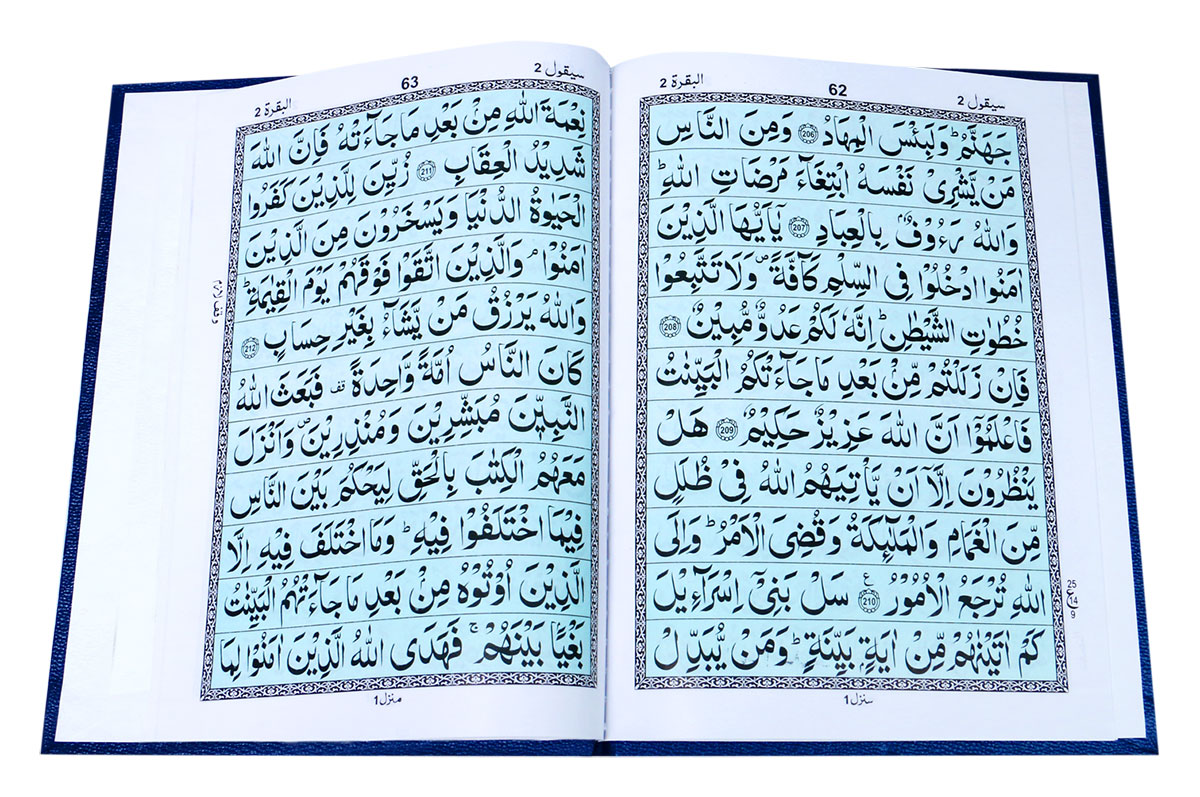 البقرة 2
62
سيقول 2
جَهَنَّمُ ؕ وَلَبِئْسَ الْمِهَادُ 206 وَمِنَ النَّاسِ
مَنْ يَّشْرِىْ نَفْسَهُ ابْتِغَآءَ مَرْضَاتِ اللّٰهِ ؕ
وَاللّٰهُ رَءُوْفٌۢ بِالْعِبَادِ 207 يٰۤاَيُّهَا الَّذِيْنَ
اٰمَنُوا ادْخُلُوْا فِى السِّلْمِ كَآفَّةً ۪ وَلَا تَتَّبِعُوْا
خُطُوٰتِ الشَّيْطٰنِ ؕ اِنَّهٗ لَكُمْ عَدُوٌّ مُّبِيْنٌ 208
فَاِنْ زَلَلْتُمْ مِّنْۢ بَعْدِ مَا جَآءَتْكُمُ الْبَيِّنٰتُ
فَاعْلَمُوْۤا اَنَّ اللّٰهَ عَزِيْزٌ حَكِيْمٌ 209 هَلْ
يَنْظُرُوْنَ اِلَّاۤ اَنْ يَّاْتِيَهُمُ اللّٰهُ فِىْ ظُلَلٍ
مِّنَ الْغَمَامِ وَالْمَلٰٓئِكَةُ وَقُضِىَ الْاَمْرُ ؕ وَاِلَى
اللّٰهِ تُرْجَعُ الْاُمُوْرُ 210 ع سَلْ بَنِىْۤ اِسْرَآءِيْلَ
كَمْ اٰتَيْنٰهُمْ مِّنْ اٰيَةٍۢ بَيِّنَةٍ ؕ وَمَنْ يُّبَدِّلْ
25
ع
14
9
منزل 1
سيقول 2
63
البقرة 2
نِعْمَةَ اللّٰهِ مِنْۢ بَعْدِ مَا جَآءَتْهُ فَاِنَّ اللّٰهَ
شَدِيْدُ الْعِقَابِ 211 زُيِّنَ لِلَّذِيْنَ كَفَرُوا
الْحَيٰوةُ الدُّنْيَا وَيَسْخَرُوْنَ مِنَ الَّذِيْنَ
اٰمَنُوْا ۘ وَالَّذِيْنَ اتَّقَوْا فَوْقَهُمْ يَوْمَ الْقِيٰمَةِ ؕ
وَاللّٰهُ يَرْزُقُ مَنْ يَّشَآءُ بِغَيْرِ حِسَابٍ 212
كَانَ النَّاسُ اُمَّةً وَّاحِدَةً قف فَبَعَثَ اللّٰهُ
النَّبِيّٖنَ مُبَشِّرِيْنَ وَمُنْذِرِيْنَ ۪ وَاَنْزَلَ
مَعَهُمُ الْكِتٰبَ بِالْحَقِّ لِيَحْكُمَ بَيْنَ النَّاسِ
فِيْمَا اخْتَلَفُوْا فِيْهِ ؕ وَمَا اخْتَلَفَ فِيْهِ اِلَّا
الَّذِيْنَ اُوْتُوْهُ مِنْۢ بَعْدِ مَا جَآءَتْهُمُ الْبَيِّنٰتُ
بَغْيًاۢ بَيْنَهُمْ ۚ فَهَدَى اللّٰهُ الَّذِيْنَ اٰمَنُوْا لِمَا
منزل 1